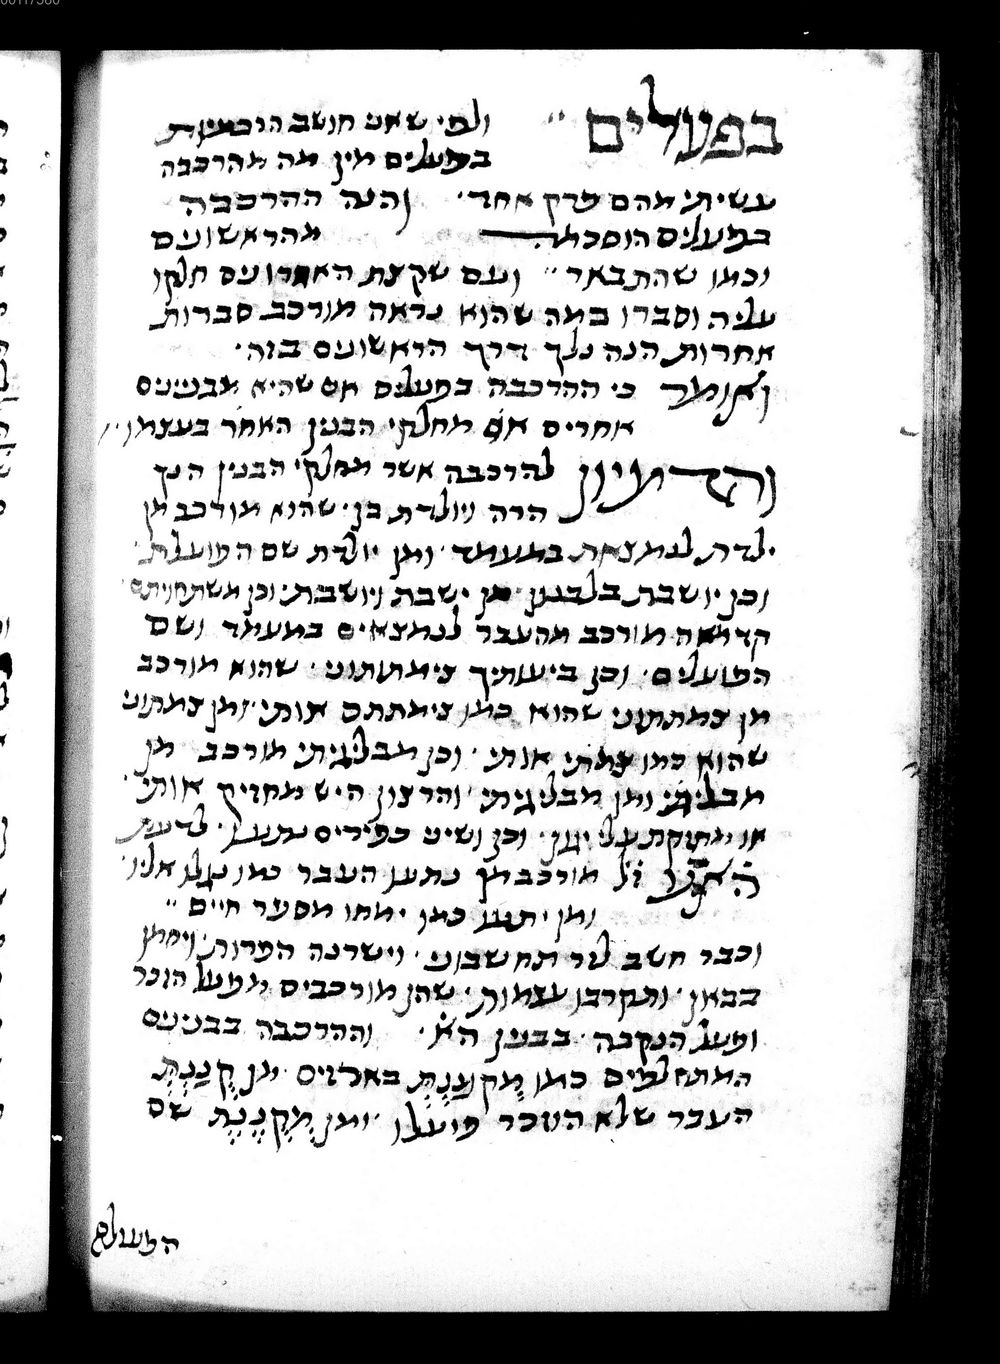 בפעלים ״ ולפי שאני חושב הרכבות
בפעלים מין מה מהרכבה
עשיתי מהם פרק אחד · והנה ההרכבה
בפעלים הוסכמה מהראשונים
וכמו שהתבאר ״ ועם שקצת האחרונים חלקו
עליה וסברו במה שהוא נראה מורכב סברות
אחרות הנה נלך דרך הראשונים בזה ·
ואומר כי ההרכבה בפעלים אם שהיא מבנינים
אחרים או מחלקי הבנין האחד בעצמו ״
והדמיון להרכבה אשר מחלקי הבנין הנך
הרה ויולדת בן · שהוא מורכב מן
ילדת לנמצאת במעמד · ומן יולדת שם הפועלת ·
וכן יושבת בלבנון מן ישבת ויושבת · וכן משתחויתם
קדמה מורכב מהעבר לנמצאים במעמד ושם
הפועלים · וכן ביעותיך צימתותוני · שהוא מורכב
מן צמתתוני שהוא כמו צימתתם אותי · ומן צמתוני
שהוא כמו צמתו אותי · וכן מבליגיתי מורכב מן
מבליגי ומן מבליגיתי · והרצון היש מחזיק אותי ·
או מחזקת עלי יגון · וכן ושיני כפירים נתעו · לדעת
הא״ע ז״ל מורכב מן נתעו העבר כמו נגלו אליו ·
ומן יתעו כמו ימחו מספר חיים ״
וכבר חשב לזר תחשבוני · וישרנה הפרות · ויחמו
בבאן · ותקרבו עצמות · שהן מורכבים מפעל הזכר
ופעל הנקבה · בבנין הא׳ · וההרכבה בבנינים
המתחלפים כמו מְקֻנַּנְתְּ בארזים · מן קֻנַּנְתְּ
העבר שלא הוזכר פועלו · ומן מְקַנֶּנֶת שם
הפועלת